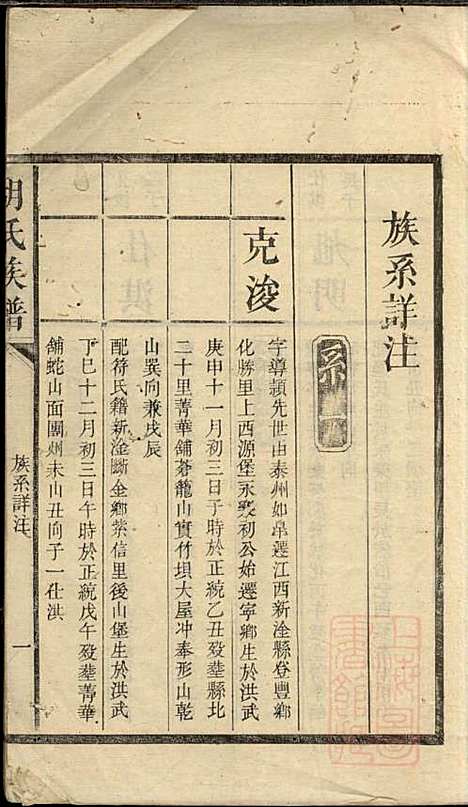 族系詳注
克浚
字導穎先世由泰州如皐遷江西新淦縣登豐鄉
化勝里上西源堡永聚初公始遷寧鄉生於洪武
庚申十一月初三日子時於正統乙丑歿塟縣北
二十里菁華舖蒼龍山實竹埧大屋冲奉形山乾
山巽向兼戌辰
配符氏籍新淦斷金鄉紫信里後山堡生於洪武
丁巳十二月初三日午時於正統戊午歿塟菁華
舖蛇山面團州未山丑向子一仕洪
胡氏族譜
族系詳注
一